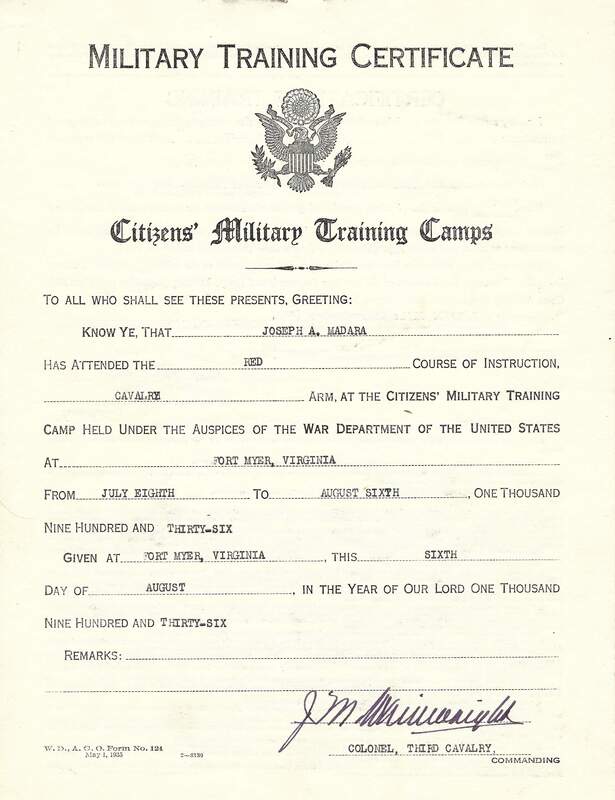 MILITARY TRAINING CERTIFICATE
Citizens' Military Training Camps
TO ALL WHO SHALL SEE THESE PRESENTS, GREETING:
KNOW YE, THAT JOSEPH A. MADARA
HAS ATTENDED THE RED COURSE OF INSTRUCTION,
CAVALRY ARM, AT THE CITIZENS' MILITARY TRAINING
CAMP HELD UNDER THE AUSPICES OF THE WAR DEPARTMENT OF THE UNITED STATES
AT FORT MYER, VIRGINIA
FROM JULY EIGHTH TO AUGUST SIXTH, ONE THOUSAND
NINE HUNDRED AND THIRTY-SIX
GIVEN AT FORT MYER, VIRGINIA, THIS SIXTH
DAY OF AUGUST, IN THE YEAR OF OUR LORD ONE THOUSAND
NINE HUNDRED AND THIRTY-SIX
REMARKS:
J M Wainwright
COLONEL, THIRD CAVALRY,
COMMANDING
W. D., A. G. O. Form No. 124
May 1, 1935